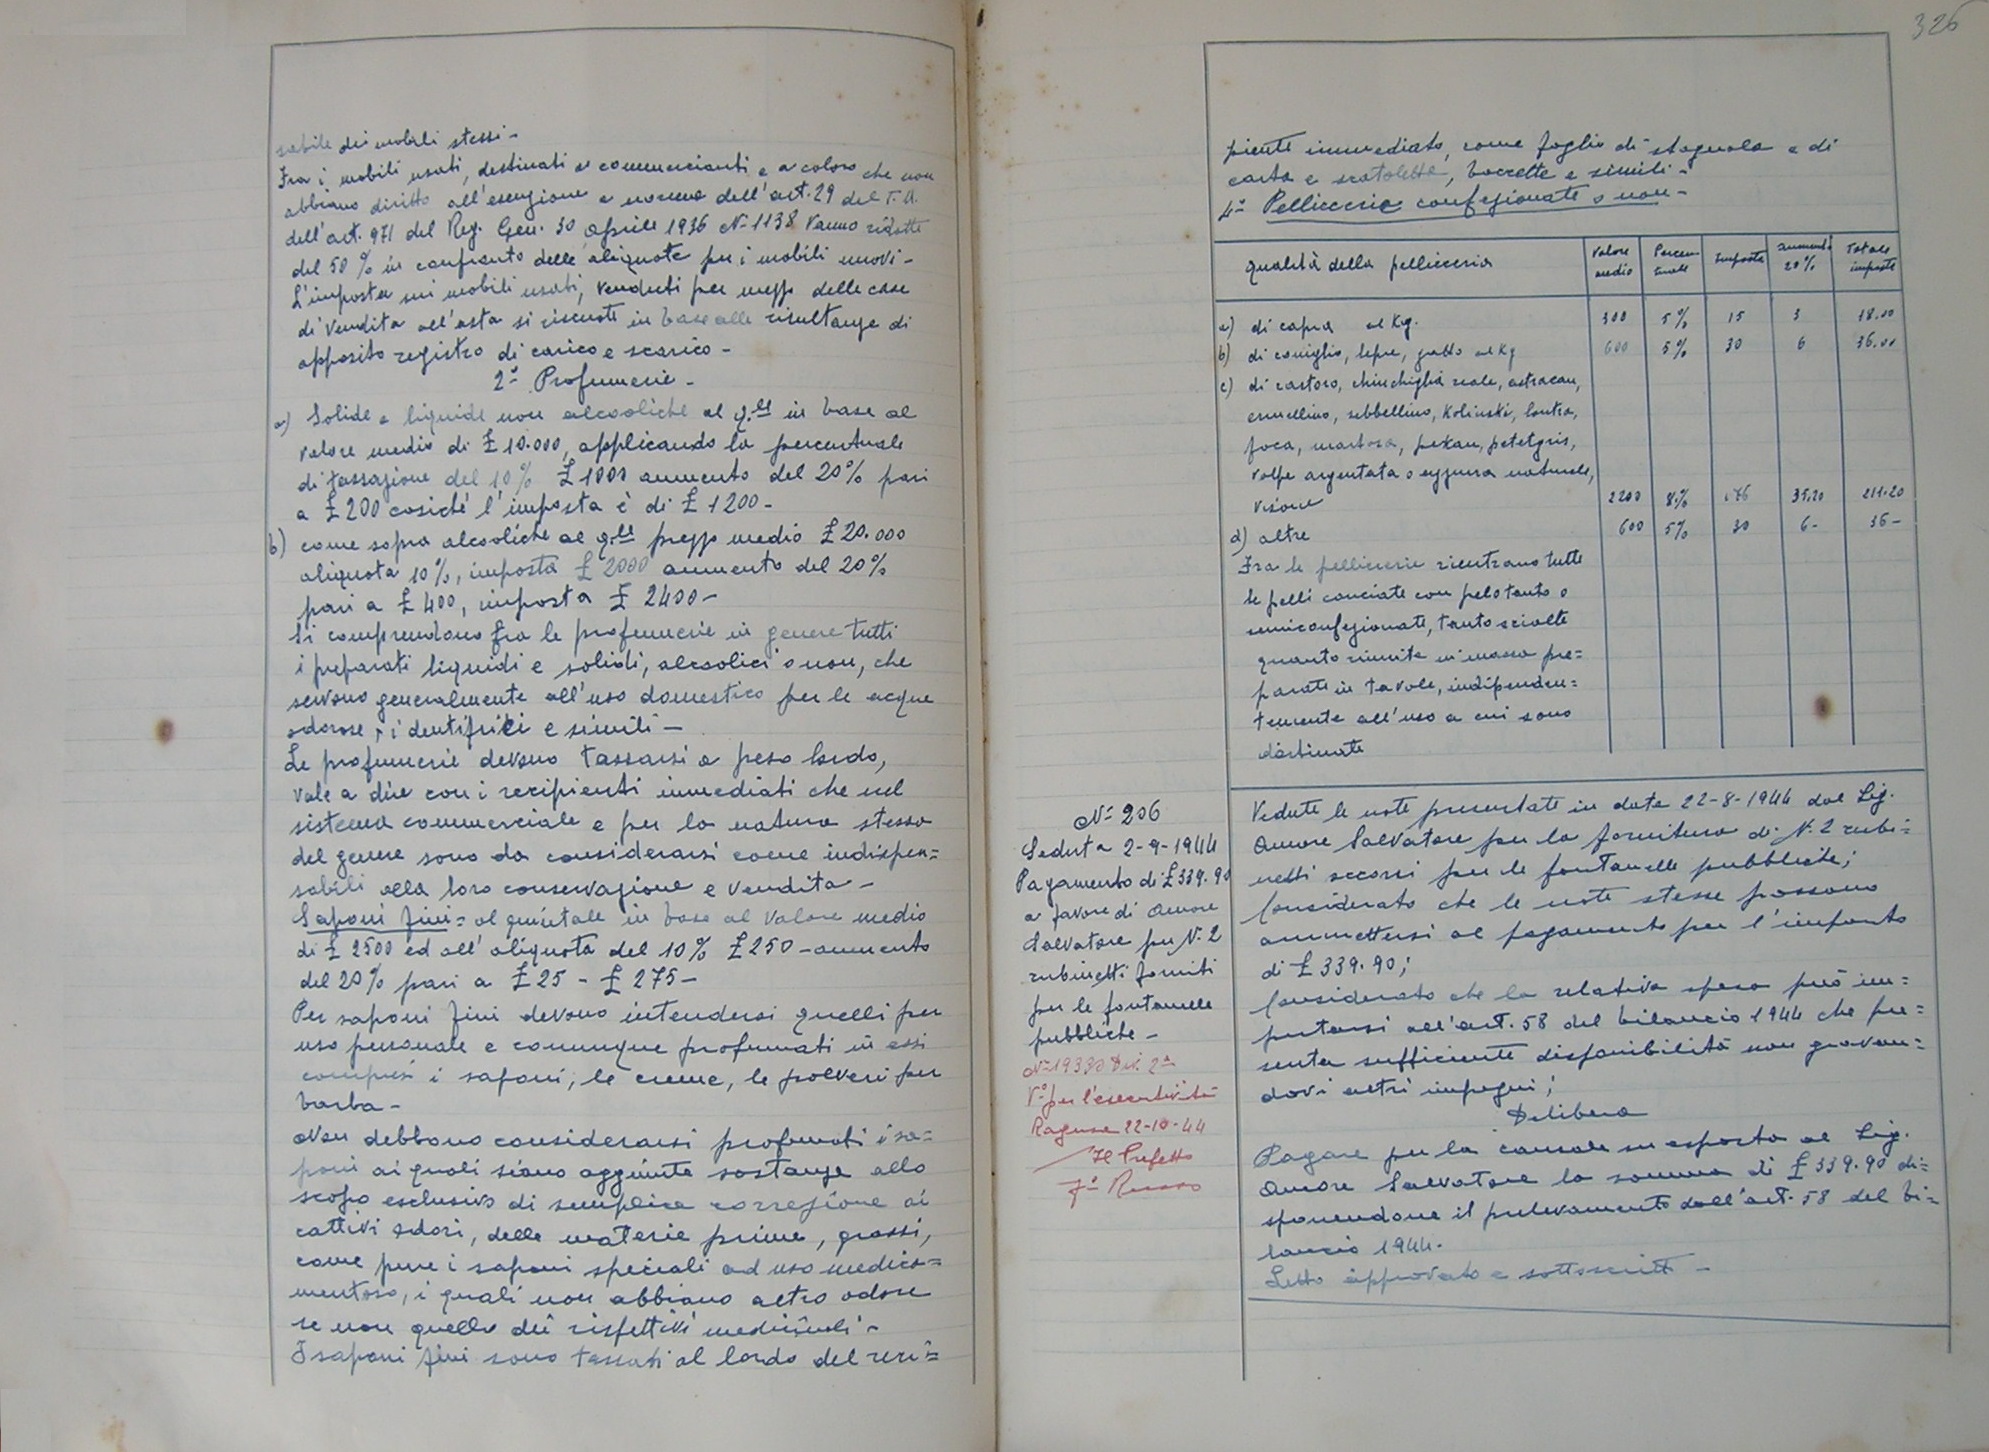 sabile dei mobili stessi -
Fra i mobili usati, destinati a commercianti e a coloro che non
abbiano diritto all'esenzione a norma dell'art. 29 del T.U.
dell'art. 971 del Reg. Gen. 30 aprile 1936 N- 1138 vanno ridotte
del 50% in confronto delle aliquote per i mobili nuovi -
L'imposta sui mobili usati, venduti per mezzo delle case
di vendita all'asta si riscuote in base alle risultanze di
apposito registro di carico e scarico -
2° Profumerie -
a) Solide e liquide non alcooliche al q.le in base al
valore medio di £ 10.000, applicando la percentuale
di tassazione del 10% £ 1000 aumento del 20% pari
a £ 200 cosiché l'imposta è di £ 1200 -
b) come sopra alcooliche al q.le prezzo medio £ 20.000
aliquota 10%, imposta £ 2000 aumento del 20%
pari a £ 400, imposta £ 2400 -
Si comprendono fra le profumerie in genere tutti
i preparati liquidi e solidi, alcoolici o non, che
servono generalmente all'uso domestico per le acque
odorose, i dentifrici e simili -
Le profumerie devono tassarsi a peso lordo,
vale a dire con i recipienti immediati che nel
sistema commerciale e per la natura stessa
del genere sono da considerarsi come indispen=
sabili alla loro conservazione e vendita -
Saponi fini = al quintale in base al valore medio
di £ 2500 ed all'aliquota del 10% £ 250 - aumento
del 20% pari a £ 25 - £ 275 -
Per saponi fini devono intendersi quelli per
uso personale e comunque profumati in essi
compresi i saponi, le creme, le polveri per
barba -
Non debbono considerarsi profumati i sa=
poni ai quali siano aggiunte sostanze allo
scopo esclusivo di semplice correzione ai
cattivi odori, delle materie prime, grassi,
come pure i saponi speciali ad uso medica=
mentoso, i quali non abbiano altro odore
se non quello dei rispettivi medicinali -
I saponi fini sono tassati al lordo del reci=
326
piente immediato, come foglio di stagnola e di
carta e scatolette, boccette e simili -
4° Pelliccerie confezionate o non -
qualità della pellicceria Valore medio Percentuale Imposta aumento 20% Totale imposte
a) di capra al Kg. 300 5% 15 3 18.00
b) di coniglio, lepre, gatto al Kg 600 5% 30 6 36.00
c) di castoro, chinchiglia reale, astracan,
ermellino, zebbellino, Kolinski, lontra,
foca, martora, pekan, petetgris,
volpe argentata o azzurra naturale,
visone 2200 8% 176 35.20 211.20
d) altre 600 5% 30 6- 36-
Fra le pelliccerie rientrano tutte
le pelli conciate con pelo tanto o
semiconfezionate, tanto sciolte
quanto riunite in massa pre=
parate in tavole, indipenden=
temente all'uso a cui sono
destinate
N- 206
Seduta 2-9-1944
Pagamento di £ 339.90
a favore di Amore
Salvatore per N. 2
rubinetti forniti
per le fontanelle
pubbliche -
N- 19330 Div. 2a
V° per l'esecutività
Ragusa 22-10-44
Il Prefetto
F° Russo
Vedute le note presentate in data 22-8-1944 dal Sig.
Amore Salvatore per la fornitura di N. 2 rubi=
netti occorsi per le fontanelle pubbliche;
Considerato che le note stesse possono
ammettersi al pagamento per l'importo
di £ 339.90;
Considerato che la relativa spesa può im=
putarsi all'art. 58 del bilancio 1944 che pre=
senta sufficiente disponibilità non gravan=
dovi altri impegni;
Delibera
Pagare per la causale su esposta al Sig.
Amore Salvatore la somma di £ 339.90 di=
sponendone il prelevamento dall'art. 58 del bi=
lancio 1944.
Letto approvato e sottoscritto -